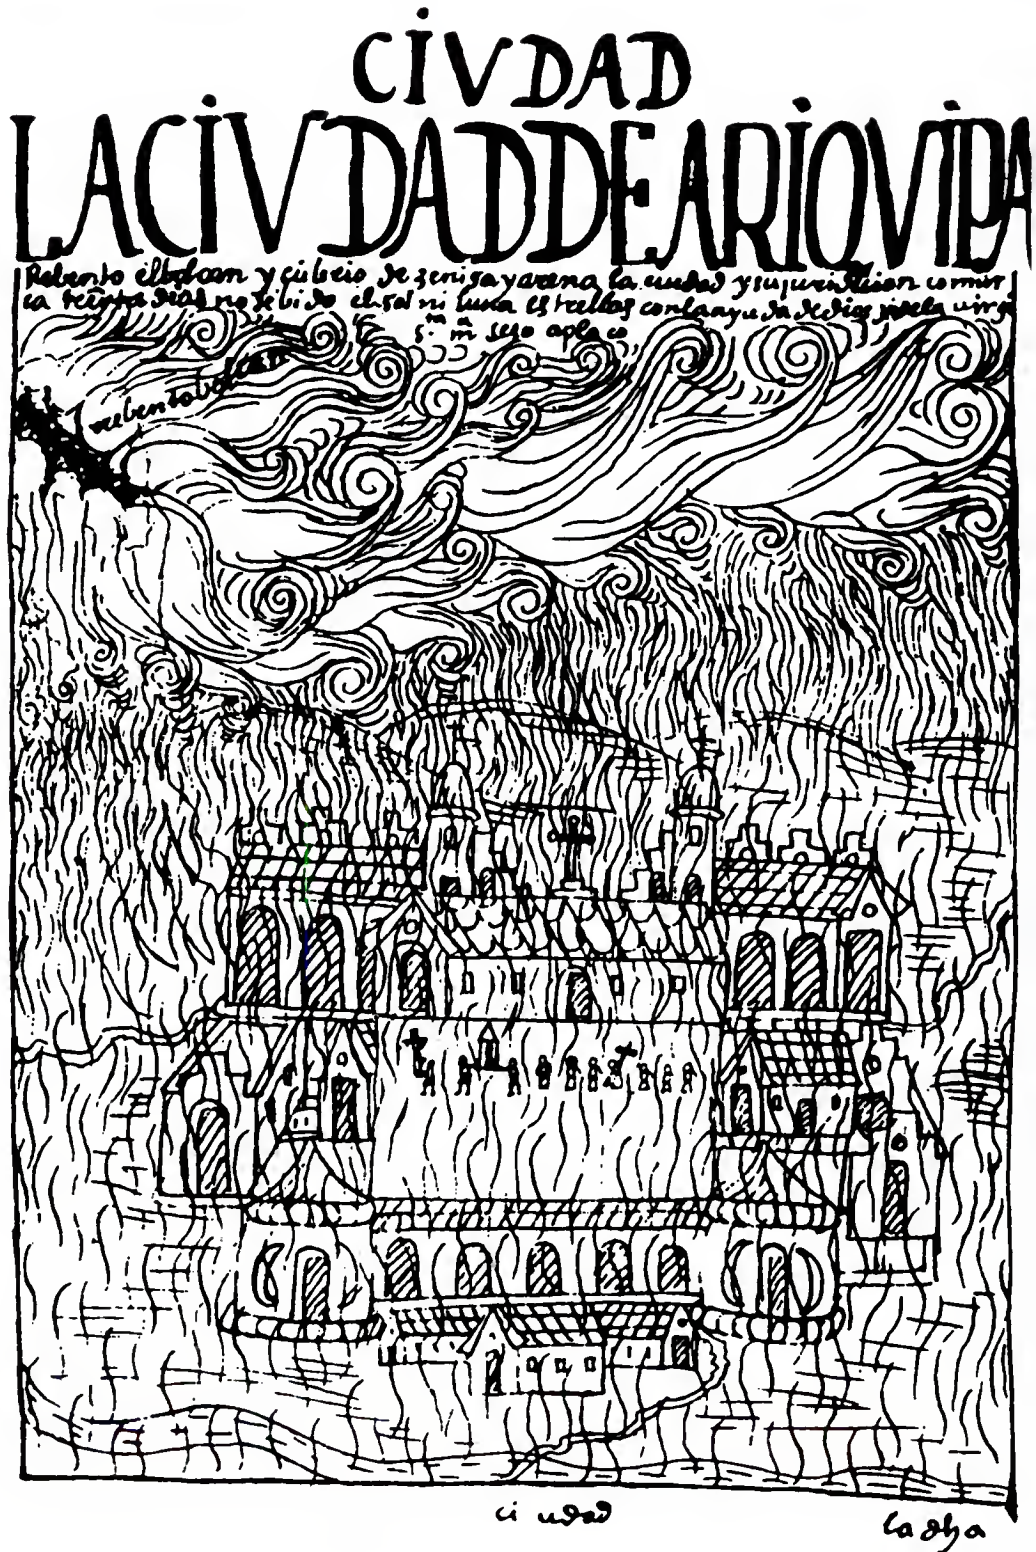 CIVDAD
LACIVDADDEARIQVIPA
Rebento el bolcan y cubrio de zeniza y arena la ciudad y su juridician comar
ca treynta dias no se bido el sol ni luna estrellas con la ayuda de dios y de la uirgē
s.ta m.a seso aplaco
rebento bolcan
ciudad
la dha